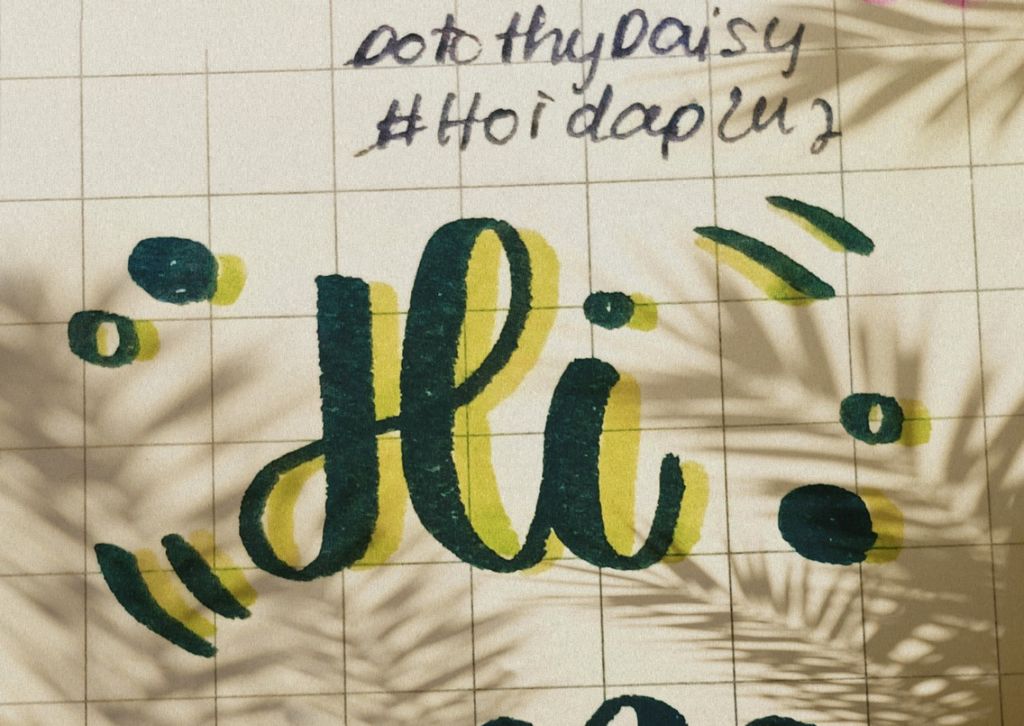 DotothyDaisy
#Hoidap247
Hi